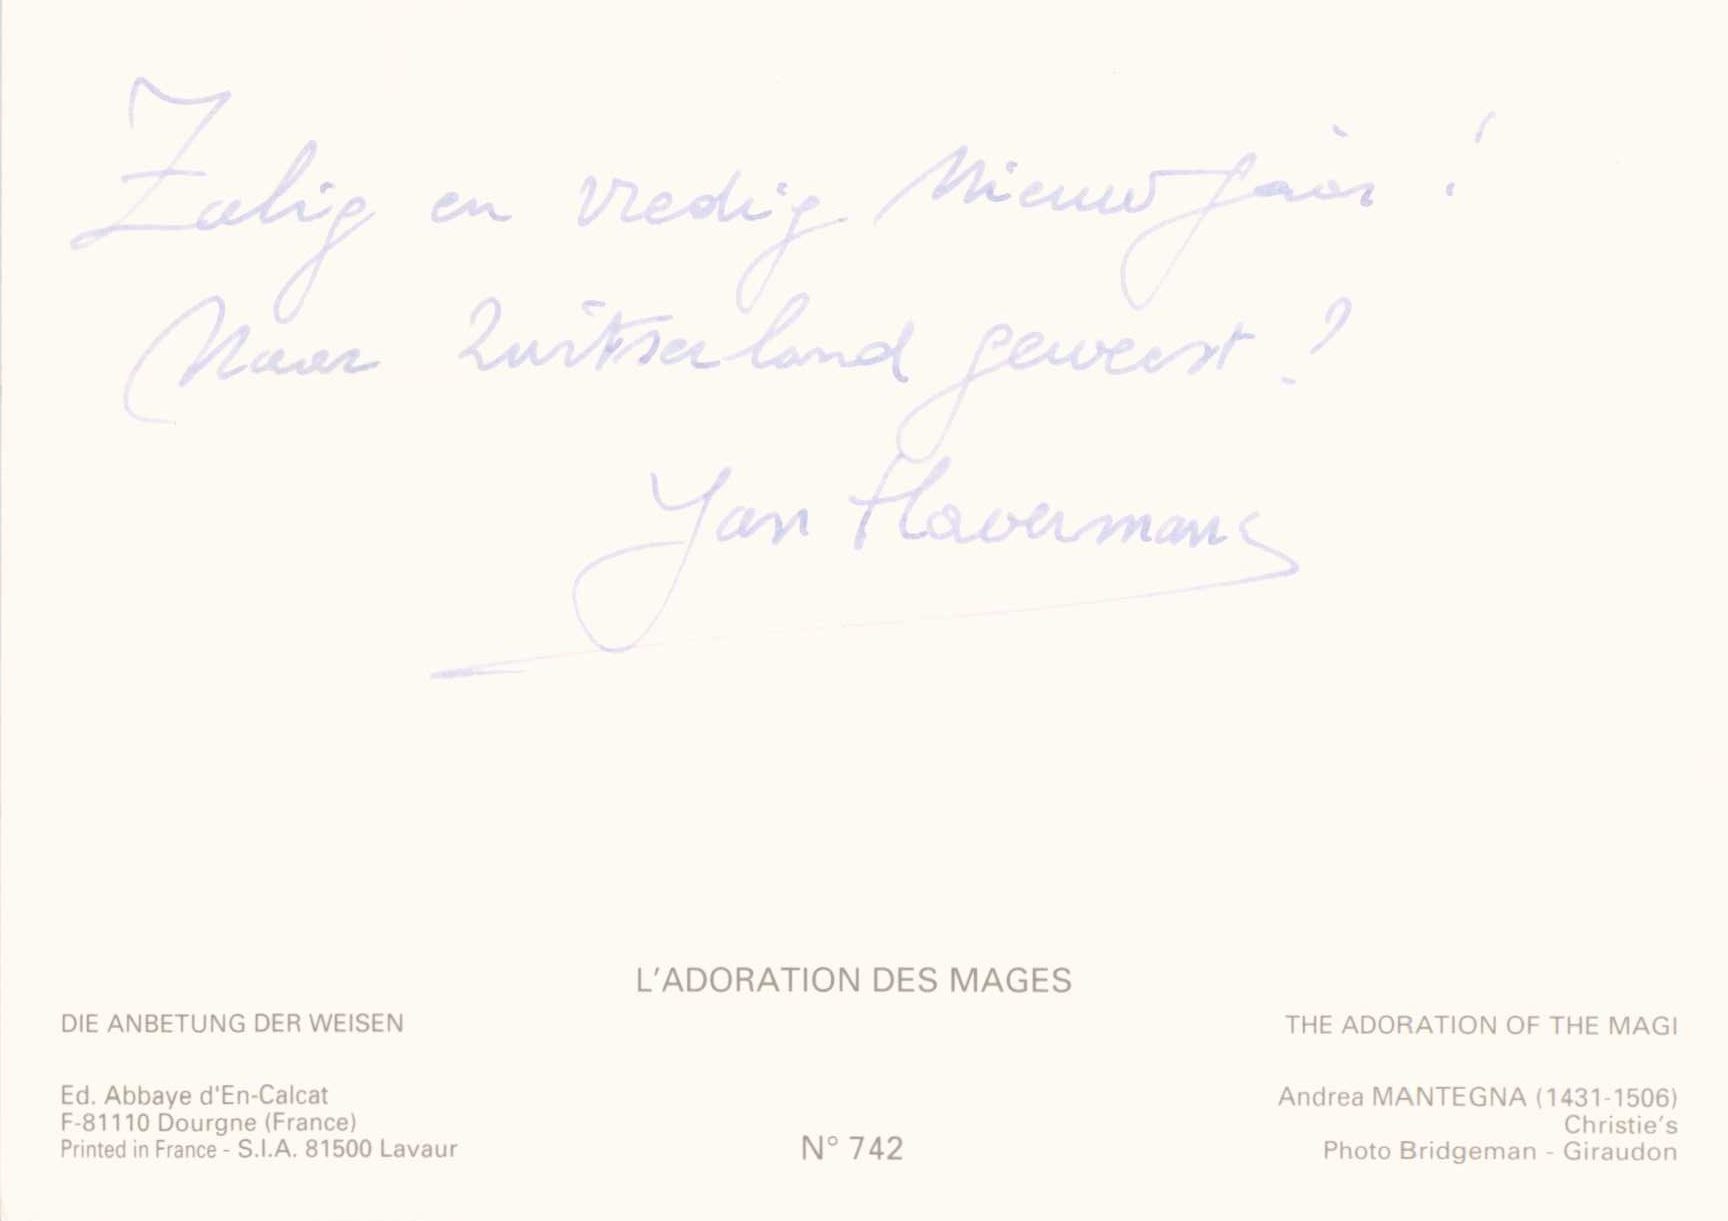 Zalig en vredig Nieuwjaar !
Naar Zwitserland geweest ?
Jan Havermans
L'ADORATION DES MAGES
DIE ANBETUNG DER WEISEN
THE ADORATION OF THE MAGI
Ed. Abbaye d'En-Calcat
F-81110 Dourgne (France)
Printed in France - S.I.A. 81500 Lavaur
N° 742
Andrea MANTEGNA (1431-1506)
Christie's
Photo Bridgeman - Giraudon